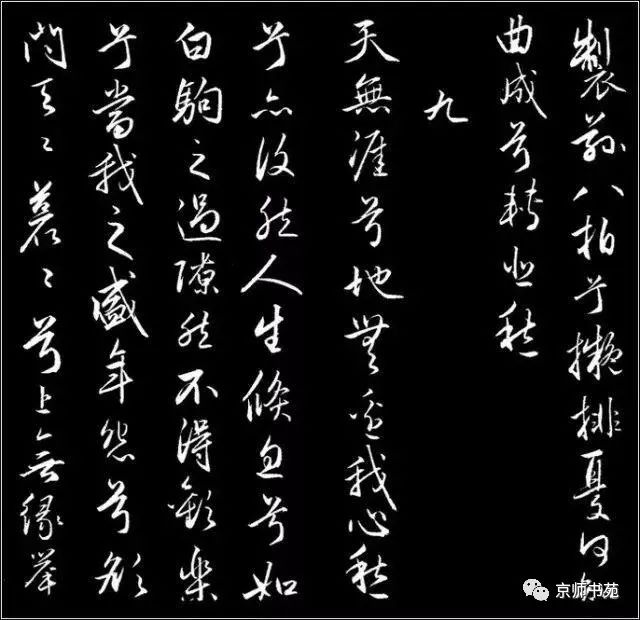 製茲八拍兮擬排憂何知
曲成兮轉悲愁
九
天無涯兮地無邊我心愁
兮亦復然人生倏忽兮如
白駒之過隙然不得歡樂
兮當我之盛年怨兮欲
問天〻蒼〻兮上無緣舉
京师书苑